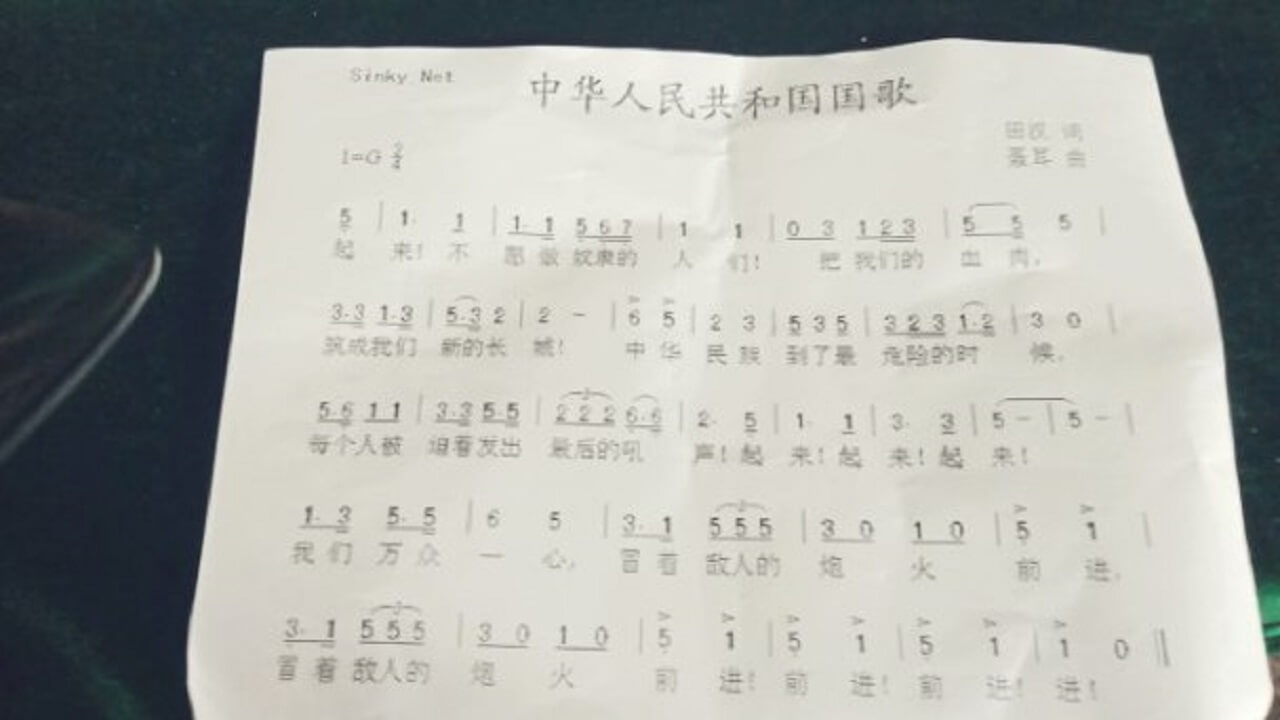 Sinky Net
中华人民共和国国歌
田汉 词
1=G 2/4
聂耳 曲
5 | 1· 1 | 1· 1 5 6 7 | 1 1 | 0 3 1 2 3 | 5 5 5 |
起 来! 不 愿 做 奴隶的 人 们! 把 我们的 血 肉,
3·3 1·3 | 5·3 2 | 2 - | 6 5 | 2 3 | 5 3 5 | 3 2 3 1·2 | 3 0 |
筑成我们 新的长 城! 中 华 民 族 到了最 危险的时 候,
5·6 1 1 | 3·3 5·5 | 2 2 2 6·6 | 2· 5 | 1· 1 | 3· 3 | 5 - | 5 - |
每个人被 迫着发出 最后的吼 声! 起 来! 起 来! 起 来!
1· 3 5· 5 | 6 5 | 3· 1 5 5 5 | 3 0 1 0 | 5 1 |
我 们 万 众 一 心, 冒 着 敌人的 炮 火 前 进,
3· 1 5 5 5 | 3 0 1 0 | 5 1 | 5 1 | 5 1 | 1 0 ‖
冒 着 敌人的 炮 火 前 进! 前 进! 前 进! 进!